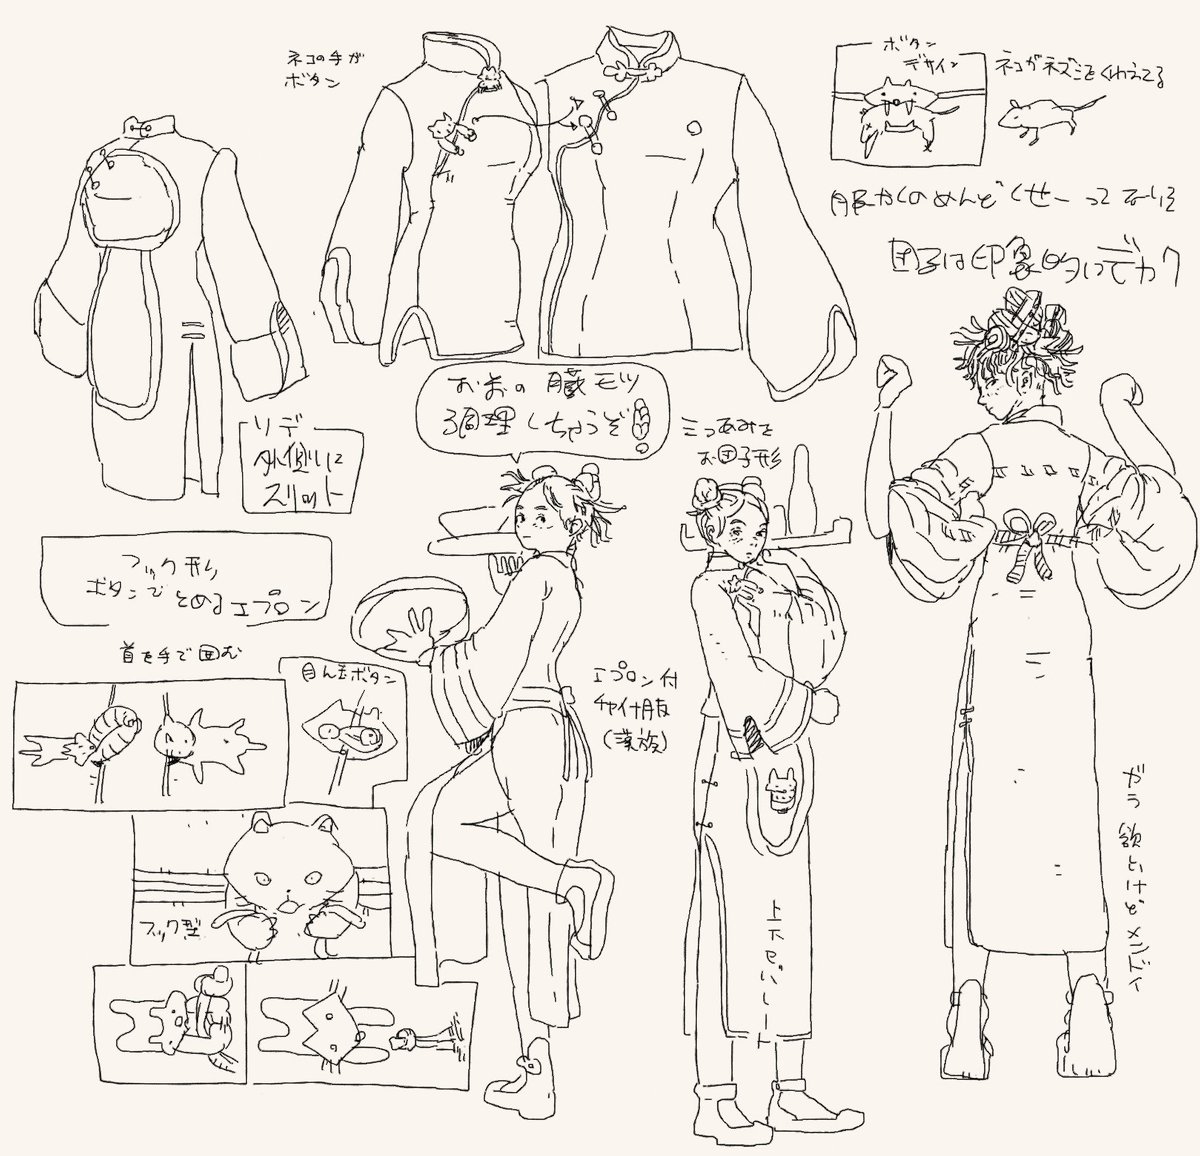 ネコの手が
ボタン
ボタン
デザイン
ネコがネズミをくわえてる
服かくのめんどくせーって ないと
団子は印象的にデカク
ソデ
外側に
スリット
お前の臓モツ
調理しちゃうぞ!
三つあみを
お団子形
フック形
ボタンでとめるエプロン
首を手で囲む
目ん玉ボタン
エプロン付
チャイナ服
(漢族)
フック型
上下セパレート
ガラ欲しいけどメンドイ